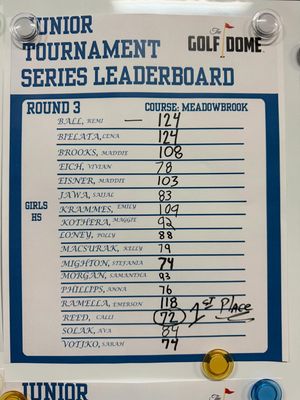 JUNIOR
TOURNAMENT
SERIES LEADERBOARD
The
GOLF DOME
ROUND 3 COURSE: MEADOWBROOK
GIRLS
HS
BALL, REMI — 124
BIELATA, LENA 124
BROOKS, MADDIE 108
EICH, VIVIAN 78
EISNER, MADDIE 103
JAWA, SAIJAL 83
KRAMMES, EMILY 109
KOTHERA, MAGGIE 92
LONEY, POLLY 88
MACSURAK, KELLY 79
MIGHTON, STEFANIA 74
MORGAN, SAMANTHA 93
PHILLIPS, ANNA 76
RAMELLA, EMERSON 118
REED, CALLI (72) 1st PLACE
SOLAK, AVA 84
VOTJKO, SARAH 74
JUNIOR
The